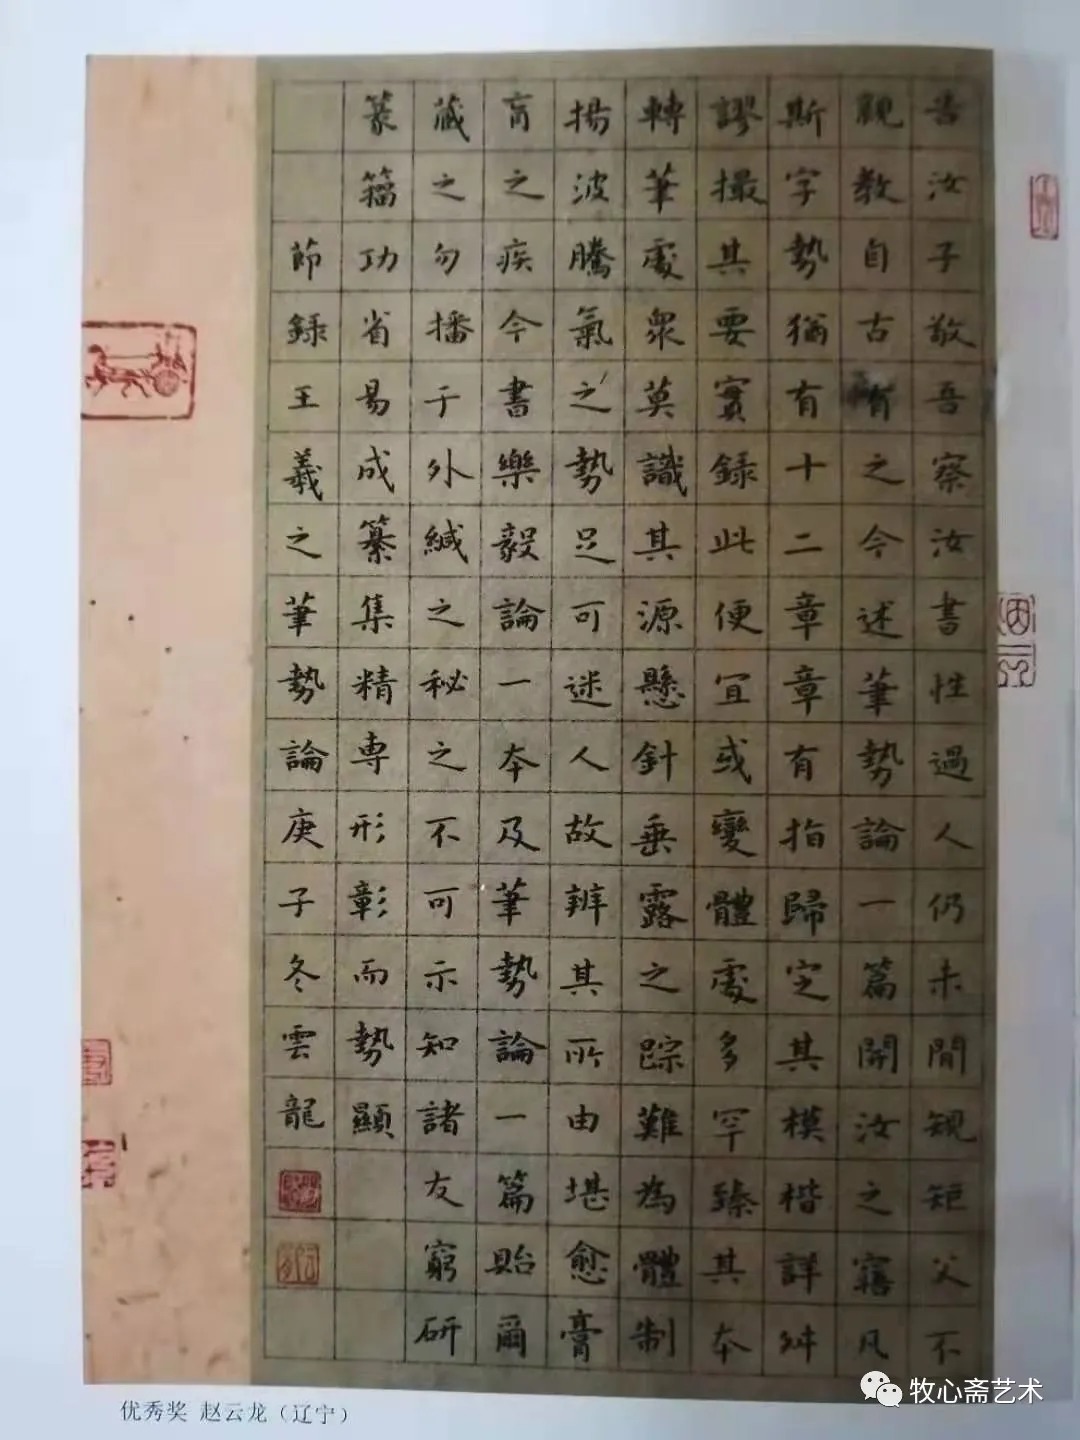 告汝子敬吾察汝書性過人仍未閒規矩父不
親教自古有之今述筆勢論一篇開汝之寤凡
斯字勢猶有十二章章有指歸定其模楷詳舛
謬撮其要實録此便宜或變體處多罕臻其本
轉筆處衆莫識其源懸針垂露之踪難為體制
揚波騰氣之勢足可迷人故辨其所由堪愈膏
肓之疾今書樂毅論一本及筆勢論一篇貽爾
藏之勿播于外緘之秘之不可示知諸友窮研
篆籀功省易成纂集精專形彰而勢顯
節録王羲之筆勢論庚子冬雲龍
优秀奖 赵云龙（辽宁）
牧心斋艺术